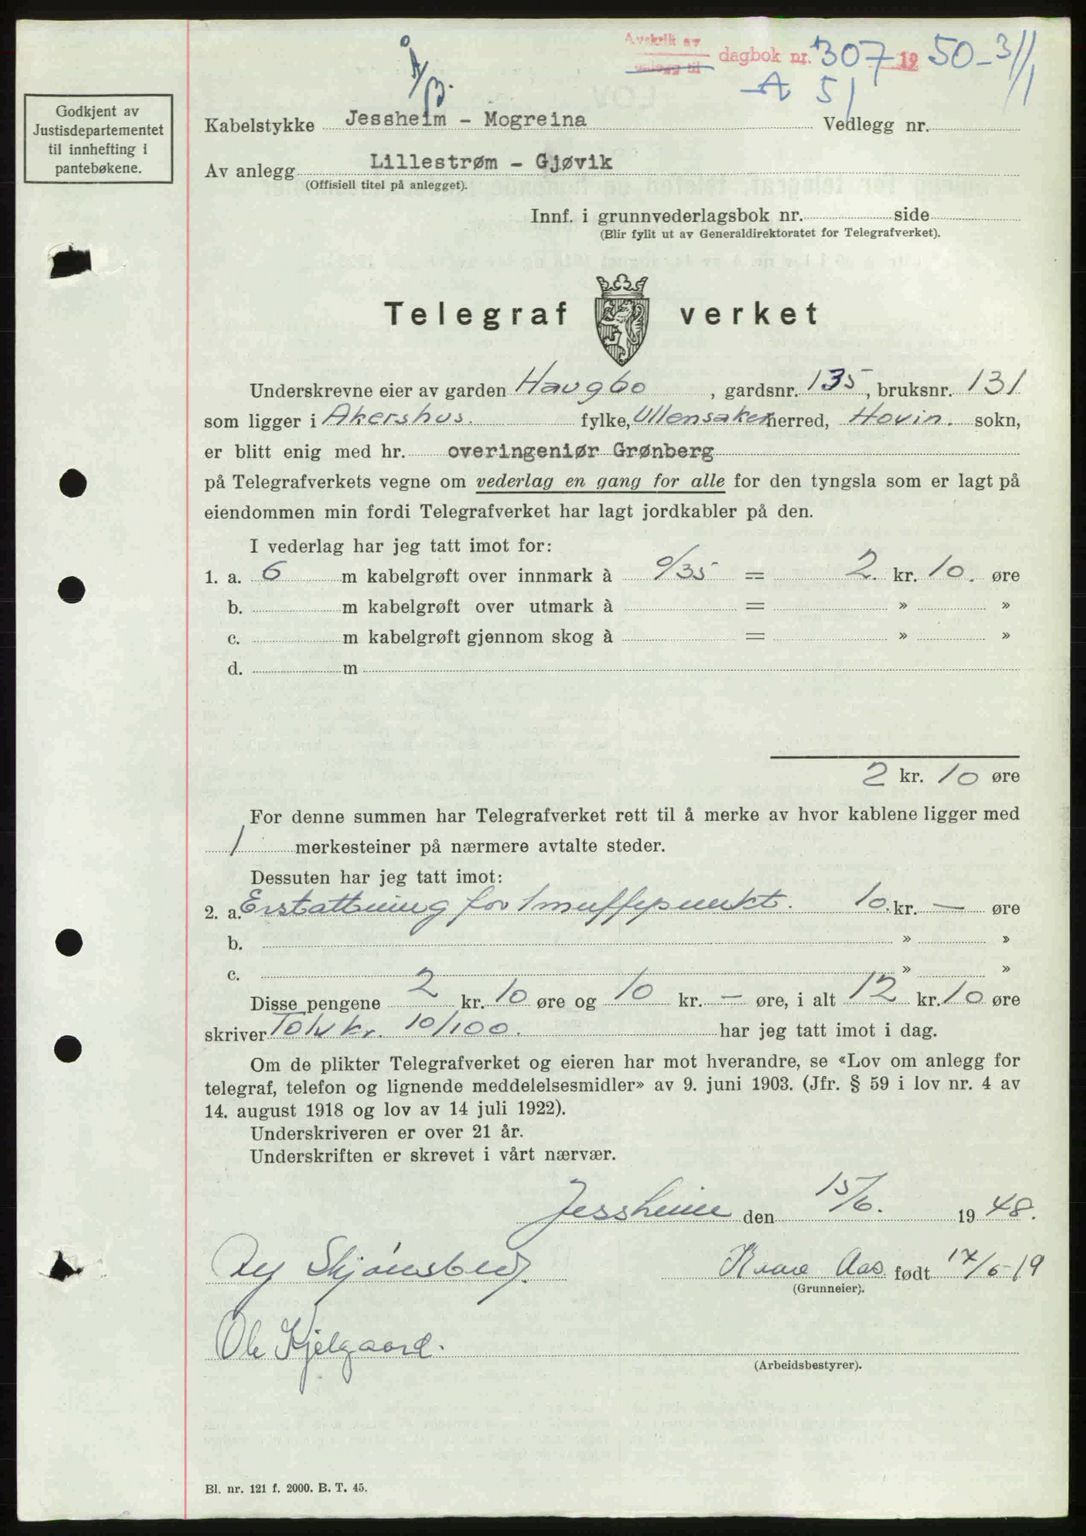 Avskrift av
vedlegg til
dagbok nr. 307 1950-3/1 1
A 51
Å/B.
Godkjent av
Justisdepartementet
til innhefting i
pantebøkene.
Kabelstykke Jessheim - Mogreina Vedlegg nr.
Av anlegg Lillestrøm - Gjøvik
(Offisiell titel på anlegget).
Innf. i grunnvederlagsbok nr. side
(Blir fylit ut av Generaldirektoratet for Telegrafverket).
Telegraf verket
Underskrevne eier av garden Haugbo , gardsnr. 135, bruksnr. 131
som ligger i Akershus. fylke, Ullensaker herred, Hovin. sokn,
er blitt enig med hr. overingeniør Grønberg
på Telegrafverkets vegne om vederlag en gang for alle for den tyngsla som er lagt på
eiendommen min fordi Telegrafverket har lagt jordkabler på den.
I vederlag har jeg tatt imot for:
1. a. 6 m kabelgrøft over innmark à 0/35 = 2. kr. 10. øre
b. m kabelgrøft over utmark à = » »
c. m kabelgrøft gjennom skog à = » »
d. m
2 kr. 10 øre
For denne summen har Telegrafverket rett til å merke av hvor kablene ligger med
1 merkesteiner på nærmere avtalte steder.
Dessuten har jeg tatt imot:
2. a. Erstattning for 1 muffepunkt. 10. kr. — øre
b. » »
c. » »
Disse pengene 2 kr. 10 øre og 10 kr. — øre, i alt 12 kr. 10 øre
skriver Tolv kr. 10/100. har jeg tatt imot i dag.
Om de plikter Telegrafverket og eieren har mot hverandre, se «Lov om anlegg for
telegraf, telefon og lignende meddelelsesmidler» av 9. juni 1903. (Jfr. § 59 i lov nr. 4 av
14. august 1918 og lov av 14 juli 1922).
Underskriveren er over 21 år.
Underskriften er skrevet i vårt nærvær.
Jessheim den 15/6. 1948.
Skjønsberg. Kaare Aas født 17/6-19
(Grunneier).
Ole Kjelgaard.
(Arbeidsbestyrer).
Bl. nr. 121 f. 2000. B. T. 45.